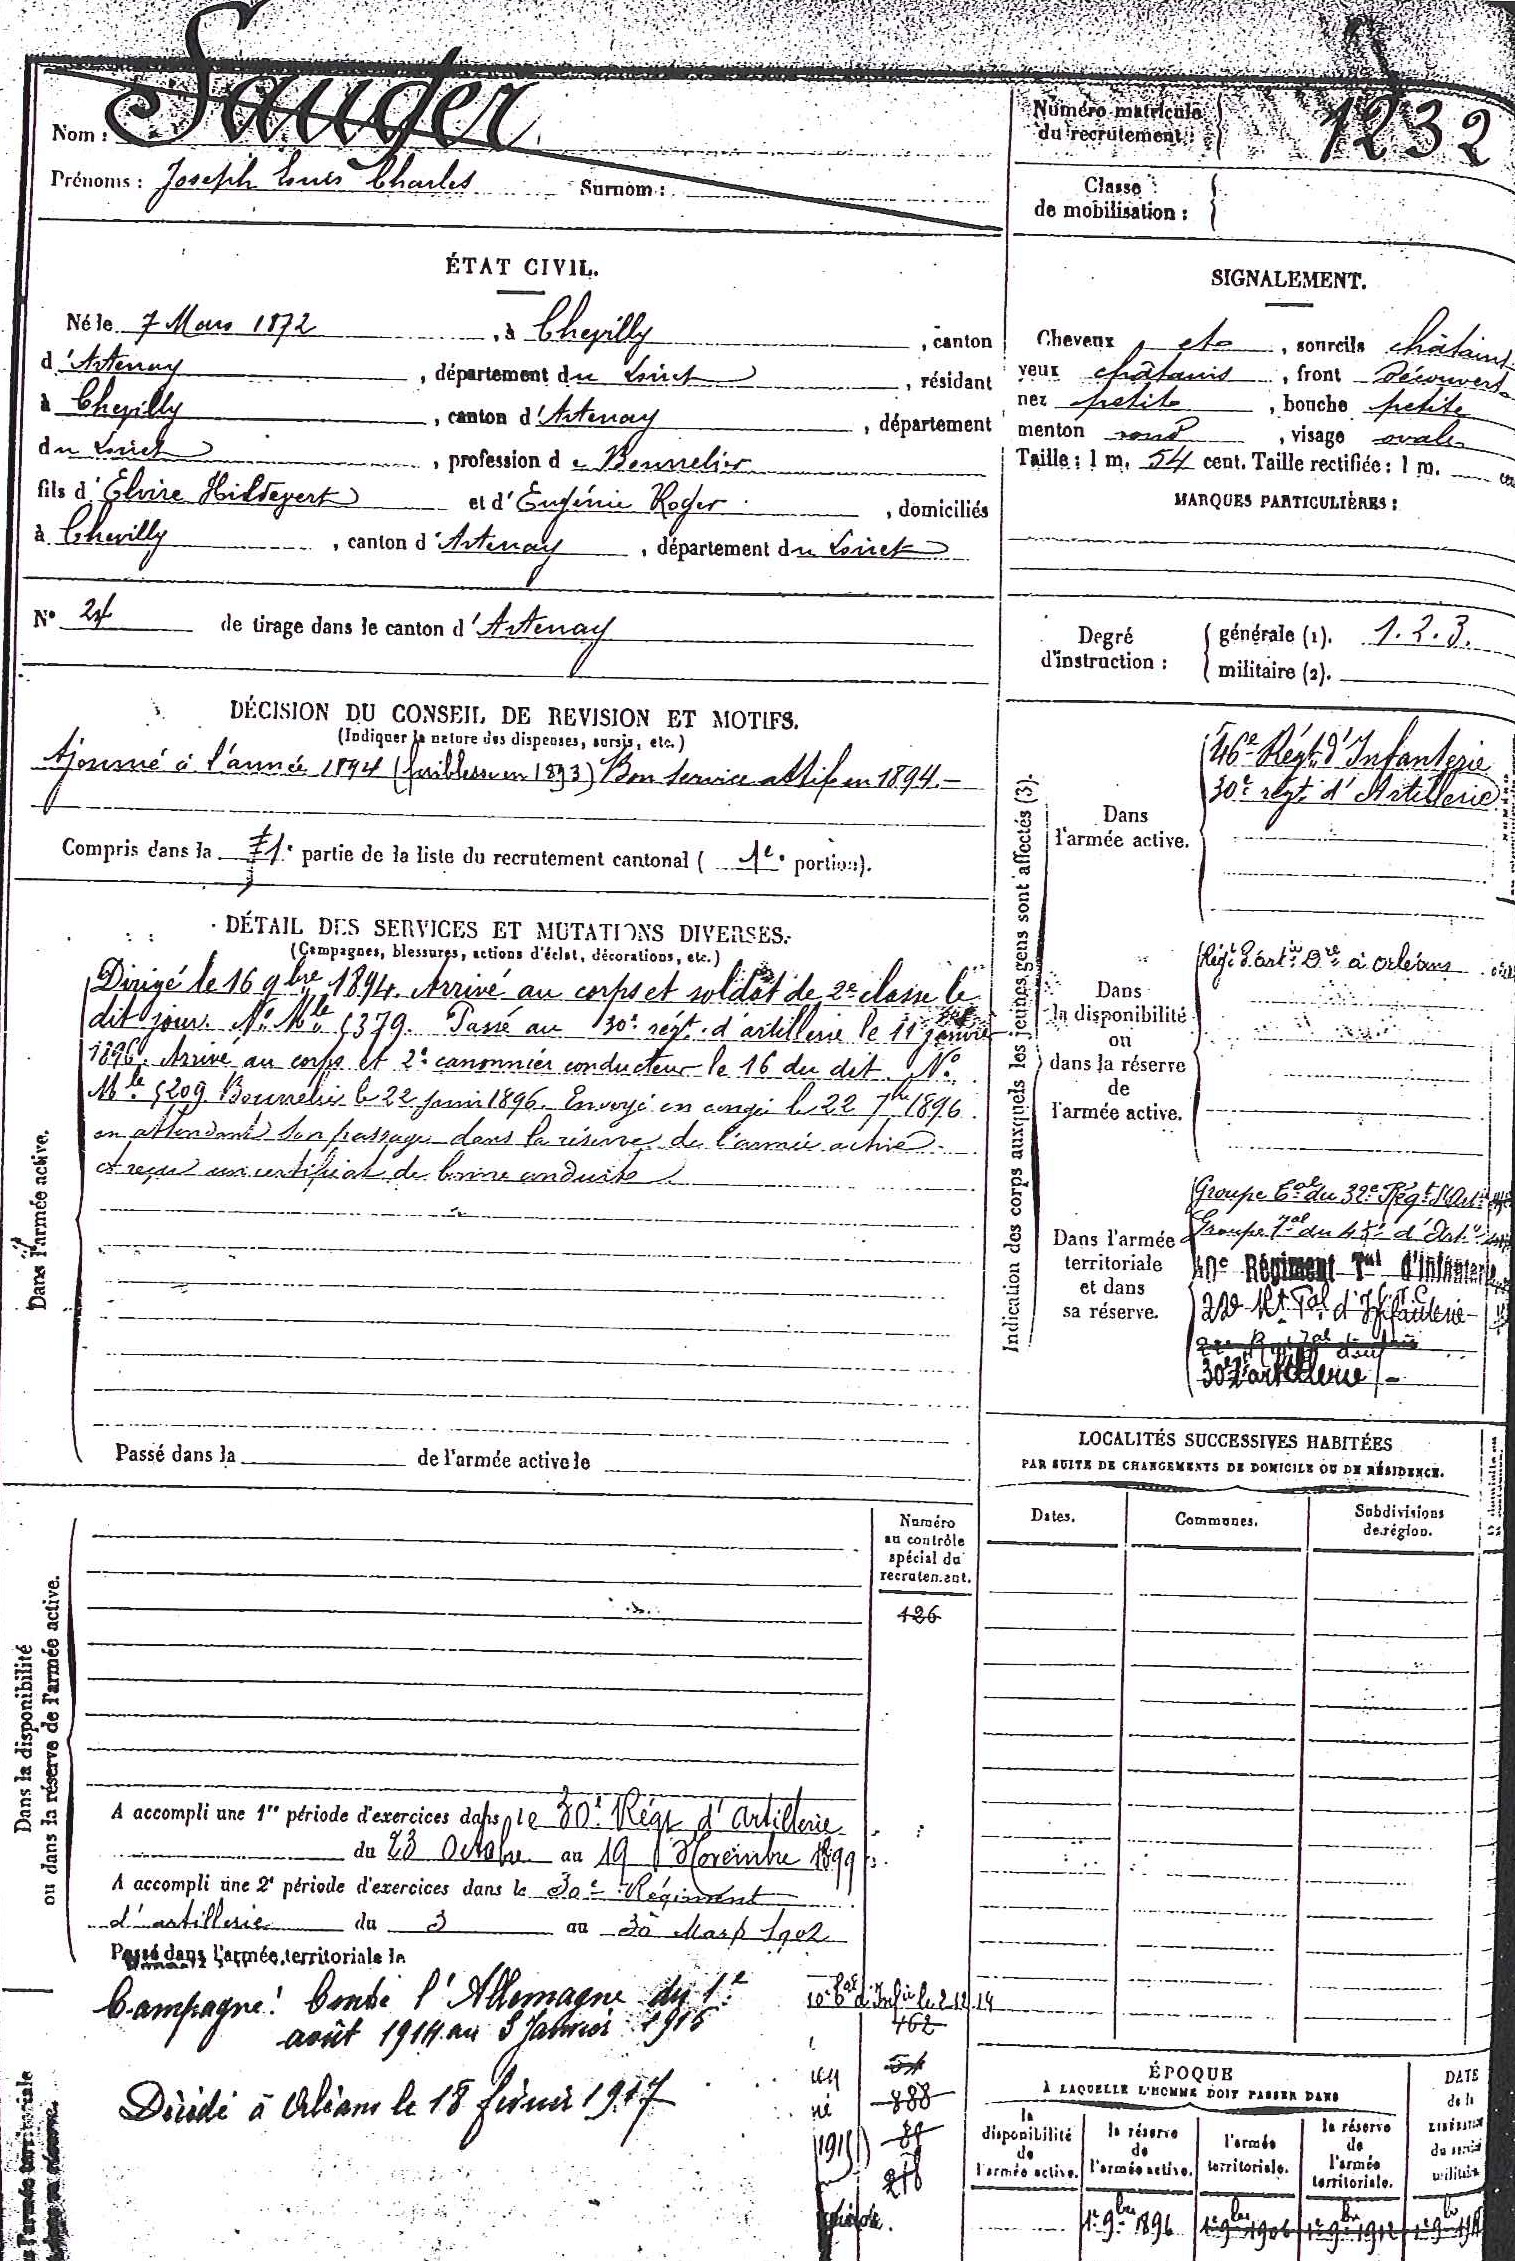 Nom : Sauger
Prénoms : Joseph Louis Charles Surnom :
Numéro matricule
du recrutement : 1232
Classe
de mobilisation :
ÉTAT CIVIL.
Né le 7 Mars 1872, à Chevilly, canton
d'Artenay, département du Loiret, résidant
à Chevilly, canton d'Artenay, département
du Loiret, profession de Bourrelier
fils d'Elvire Hildevert et d'Eugénie Roger, domiciliés
à Chevilly, canton d'Artenay, département du Loiret
SIGNALEMENT.
Cheveux et, sourcils châtains
yeux châtains, front Découvert
nez petit, bouche petite
menton rond, visage ovale
Taille : 1 m. 54 cent. Taille rectifiée : 1 m.
MARQUES PARTICULIÈRES :
N° 24 de tirage dans le canton d'Artenay
Degré
d'instruction :
générale (1). 1.2.3.
militaire (2).
DÉCISION DU CONSEIL DE REVISION ET MOTIFS.
(Indiquer la nature des dispenses, sursis, etc.)
Ajourné à l'année 1894 (faiblesse en 1893) Bon service actif en 1894.-
Compris dans la 1e partie de la liste du recrutement cantonal ( 1e portion).
DÉTAIL DES SERVICES ET MUTATIONS DIVERSES.
(Campagnes, blessures, actions d'éclat, décorations, etc.)
Dans l'armée active.
Dirigé le 16 9bre 1894. Arrivé au corps et soldat de 2e classe le
dit jour. N° Mle 5379. Passé au 30e régt. d'artillerie le 11 janvier
1896. Arrivé au corps et 2e canonnier conducteur le 16 du dit. N°
Mle 5209 Bourrelier le 22 1896. Envoyé en congé le 22 7bre 1896
en attendant son passage dans la réserve de l'armée active
et reçu un certificat de bonne conduite
Passé dans la de l'armée active le
Indication des corps auxquels les jeunes gens sont affectés (3).
Dans
l'armée active.
46e Régt d'Infanterie
30e régt d'Artillerie
Dans
la disponibilité
ou
dans la réserve
de
l'armée active.
Régt d'art. à Orléans
Dans l'armée
territoriale
et dans
sa réserve.
Groupe du 32e Régt d'Art
Groupe du 45e d'Art
40e Régiment Tal d'Infanterie
Tal d'Infanterie
30e d'artillerie
LOCALITÉS SUCCESSIVES HABITÉES
PAR SUITE DE CHANGEMENTS DE DOMICILE OU DE RÉSIDENCE.
Dates. Communes. Subdivisions
de région.
Dans la disponibilité
ou dans la réserve de l'armée active.
Numéro
au contrôle
spécial du
recrutement.
126
A accompli une 1re période d'exercices dans le 30e Régt d'artillerie
du 23 Octobre au 19 Novembre 1899
A accompli une 2e période d'exercices dans le 30e Régiment
d'artillerie du 3 au 30 Mars 1902
Passé dans l'armée territoriale le
Campagne : Contre l'Allemagne du 1e
août 1914 au 3 Janvier 1915
Décédé à Orléans le 18 février 1917
le 2.12.14
162
54
888
218
ÉPOQUE
À LAQUELLE L'HOMME DOIT PASSER DANS
la
disponibilité
de
l'armée active.
la réserve
de
l'armée active.
l'armée
territoriale.
la réserve
de
l'armée
territoriale.
DATE
de la
LIBÉRATION
du service
militaire
1er 9bre 1896 1er 9bre 1906 1er 9bre 1912